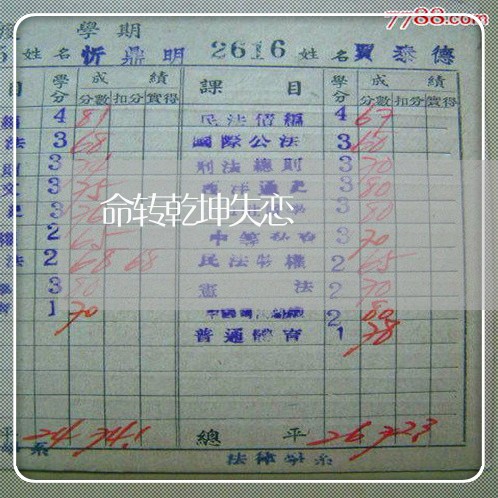 7788.com
學期
姓名 忻鼎明 2616 姓名 賈泰德
目 學分 成績 課目 學分 成績
分數 扣分 實得 分數 扣分 實得
4 81 民法債編 4 67
法 3 68 國際公法 3 60
3 刑法總則 3 70
3 75 西洋通史 3 80
3 3 80
命转乾坤失恋
2 65 3 70
法 2 68 68 民法物權 2 65
3 80 憲法 2 70
1 70 2 80
普通體育 1 78
平 24 74.1 總平 26 72.3
系 法律學系